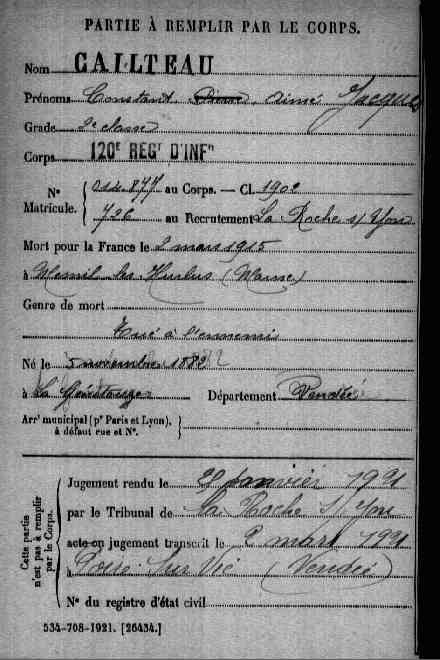 PARTIE À REMPLIR PAR LE CORPS.
Nom CAILTEAU
Prénoms Constant, Pierre, Aimé Jacques
Grade 2e classe
Corps 120E REGT D'INFIE
N° Matricule. 877 au Corps. — Cl. 1902
726 au Recrutement La Roche s/ Yon
Mort pour la France le 2 mars 1915
à Mesnil les Hurlus (Marne)
Genre de mort
Tué à l'ennemi
Né le 5 novembre 1882
à La Département Vendée
Arrt municipal (pr Paris et Lyon), à défaut rue et N°.
Cette partie n'est pas à remplir par le Corps.
Jugement rendu le janvier 1921
par le Tribunal de La Roche s/ Yon
acte ou jugement transcrit le 2 mars 1921
à Poiré sur Vie (Vendée)
N° du registre d'état civil
534-708-1921. [26434.]